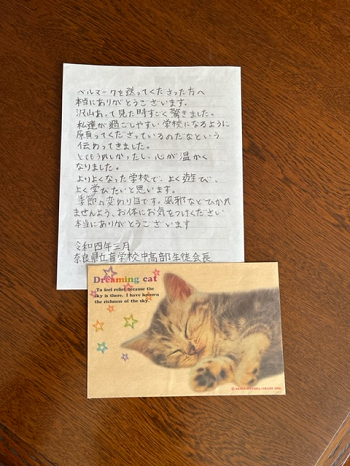 ベルマークを送ってくださった方へ
本当にありがとうございます。
沢山あって見た時すごく驚きました。
私達が過ごしやすい学校になるように
願ってくださっているのだなという
伝わってきました。
とてもうれしかったし、心が温かく
なりました。
よりよくなった学校で、よく遊び、
よく学びたいと思います。
季節の変わり目です。風邪などひかれ
ませんよう、お体にお気をつけください
本当にありがとうございます
令和四年三月
奈良県立盲学校中高部生徒会長
Dreaming cat
To feel relief because the
sky is there. I have known
the richness of the sky.